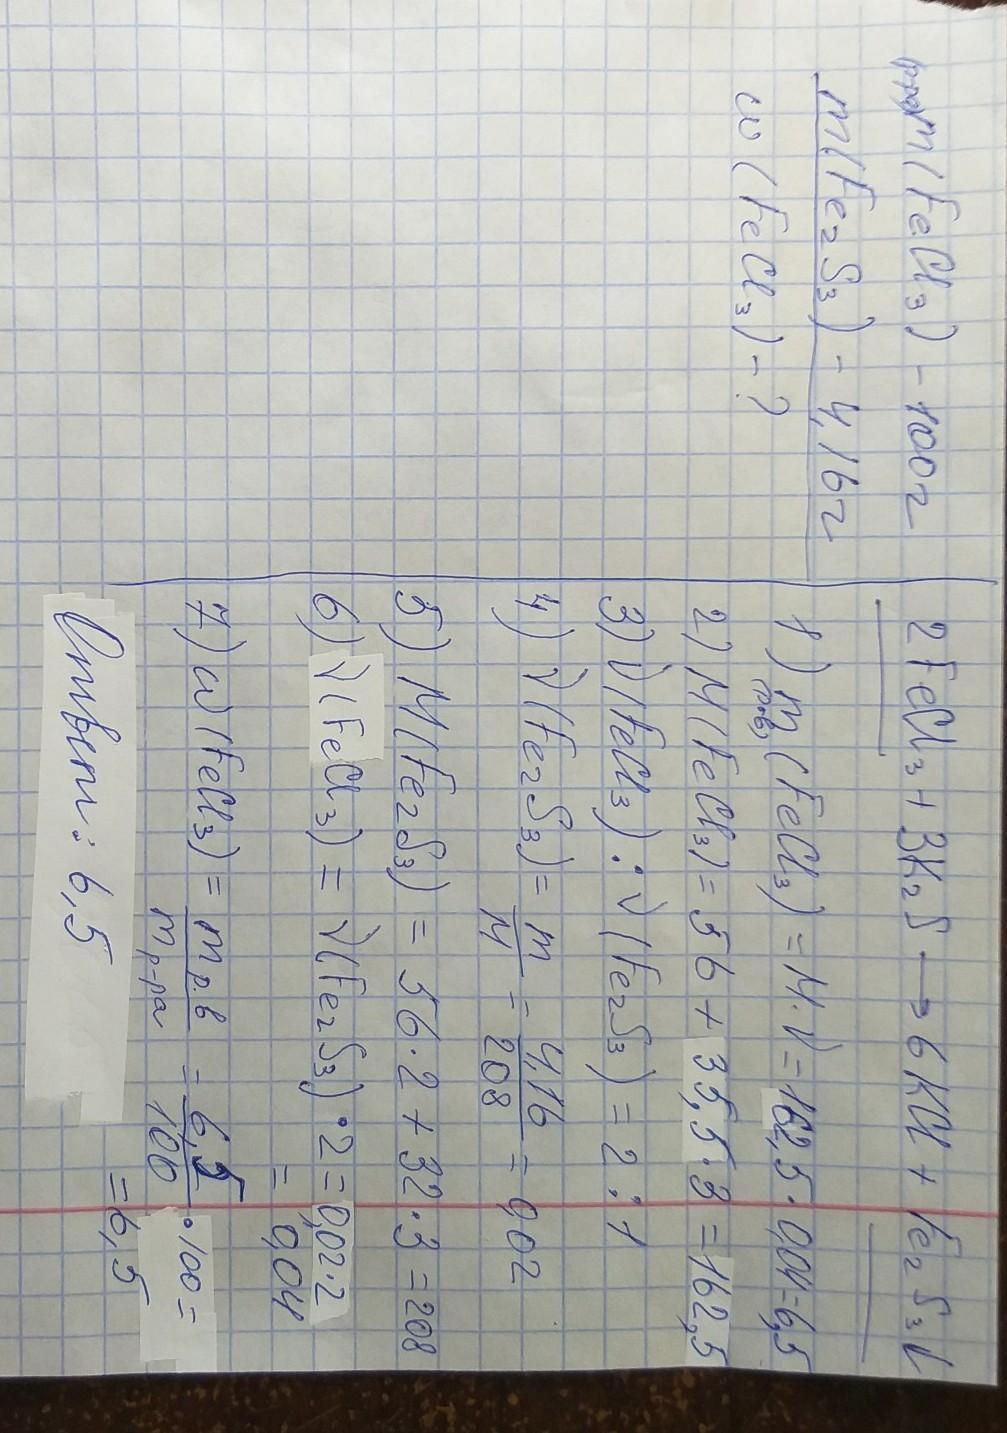 m(FeCl₃) - 100г
m(Fe₂S₃) - 4,16г
ω(FeCl₃) - ?
2FeCl₃ + 3K₂S → 6KCl + Fe₂S₃↓
1) m(FeCl₃) = M · ν = 162,5 · 0,04 = 6,5
(р.в)
2) M(FeCl₃) = 56 + 35,5 · 3 = 162,5
3) ν(FeCl₃) : ν(Fe₂S₃) = 2 : 1
4) ν(Fe₂S₃) = m/M = 4,16/208 = 0,02
5) M(Fe₂S₃) = 56 · 2 + 32 · 3 = 208
6) ν(FeCl₃) = ν(Fe₂S₃) · 2 = 0,02 · 2
= 0,04
7) ω(FeCl₃) = m р.в / m р-ра = 6,5/100 · 100 =
= 6,5
Ответ: 6,5